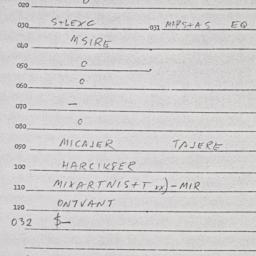 020 0
030 S+LEXC 031 MAPS+AS EQ
040 MSIRE
050 0
060 0
070 —
080 0
090 MICAJER TAJERE
100 HARCIKSER
110 MIXARTNIS+T xx)-MIR
120 ONTVANT
032 $—